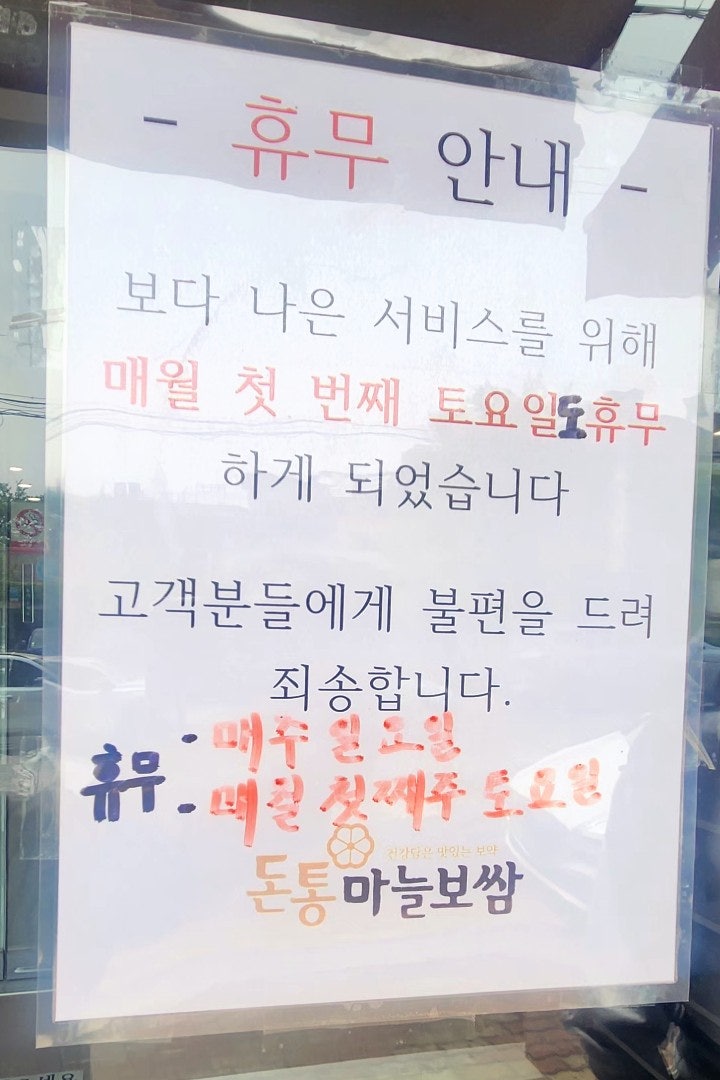 - 휴무 안내 -
보다 나은 서비스를 위해
매월 첫 번째 토요일도 휴무
하게 되었습니다
고객분들에게 불편을 드려
죄송합니다.
휴무 · 매주 일요일
- 매월 첫째주 토요일
건강담은 맛있는 보약
돈통 마늘보쌈